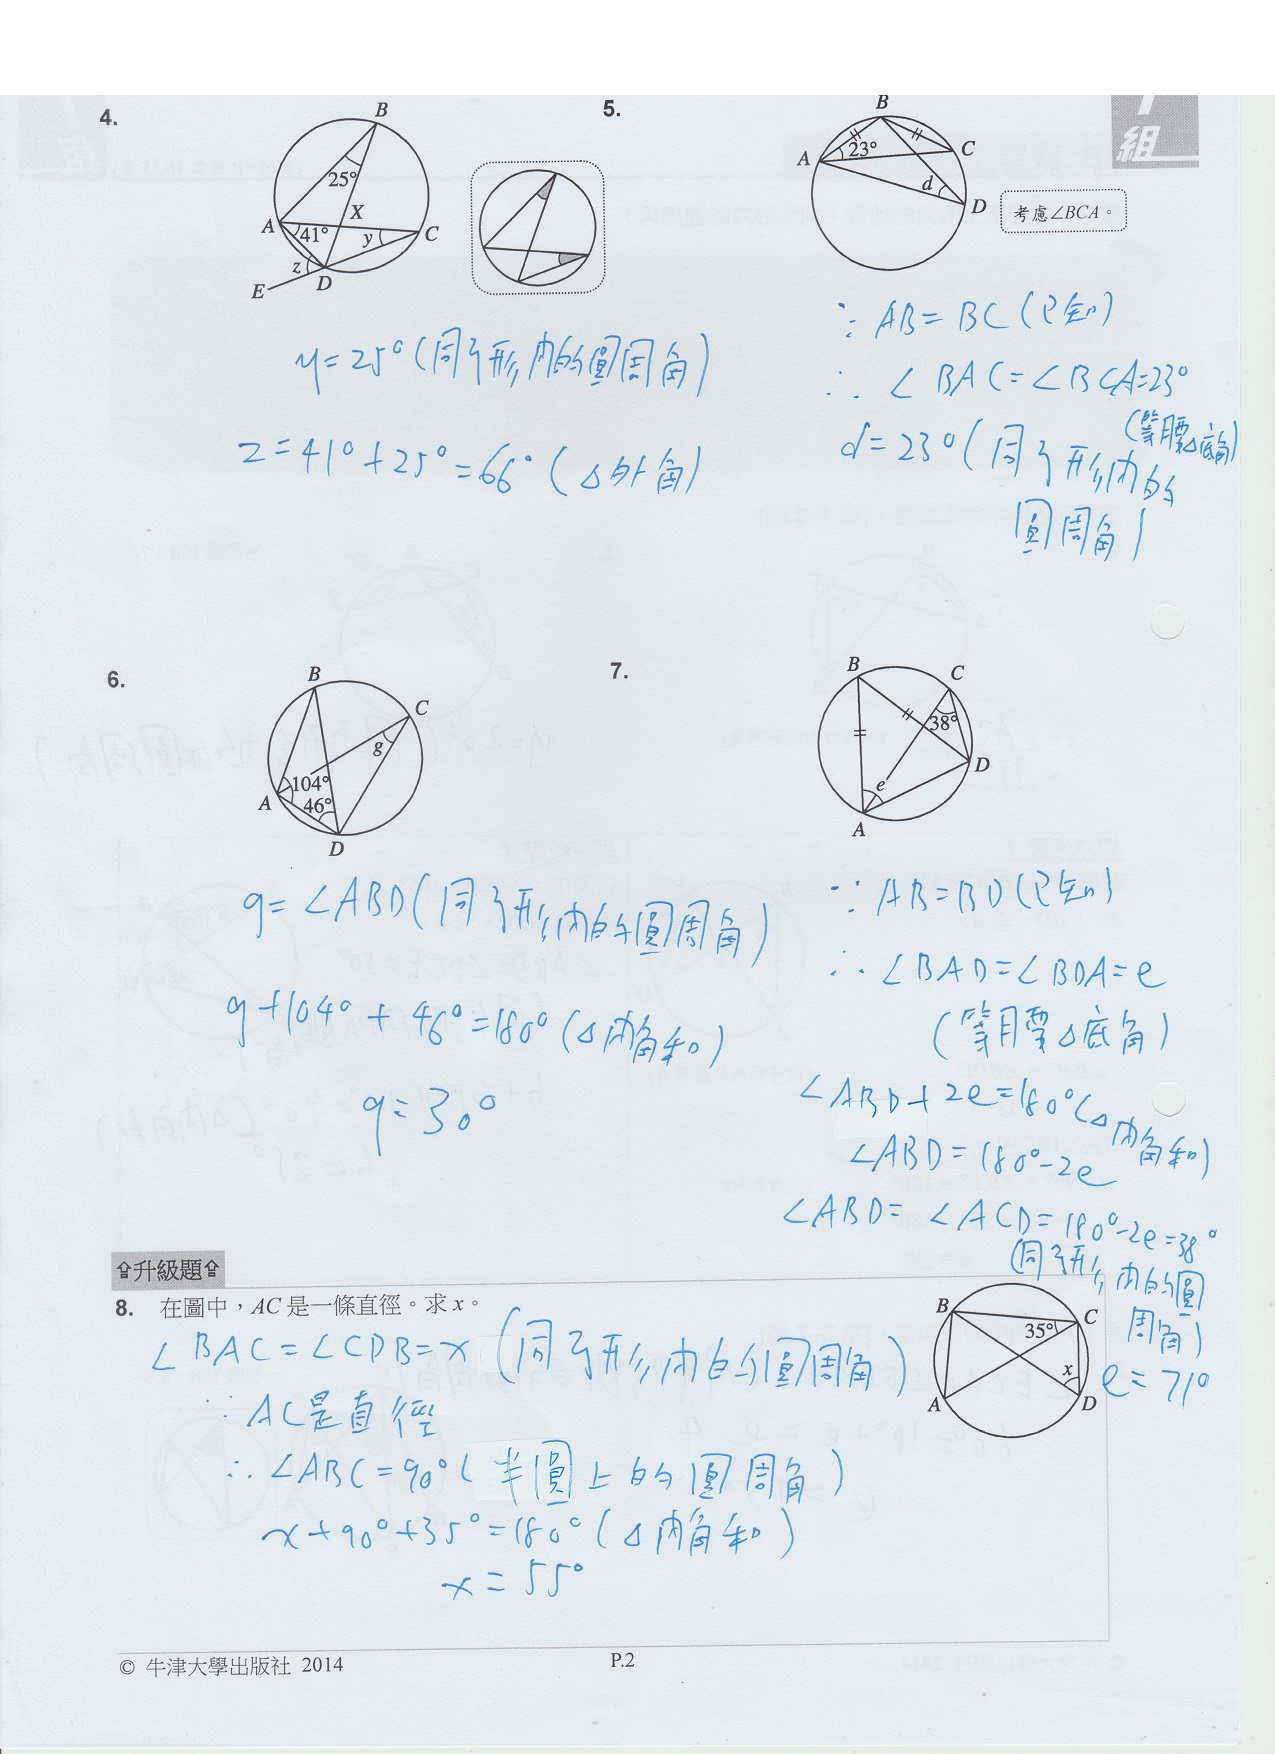 組
4.
B
25°
X
A
41°
y
C
z
E
D
y=25°(同弓形內的圓周角)
z=41°+25°=66°(△外角)
5.
B
A
23°
C
d
D
考慮∠BCA。
∵ AB=BC(已知)
∴ ∠BAC=∠BCA=23°
(等腰△底角)
d=23°(同弓形內的
圓周角)
6.
B
C
g
104°
A
46°
D
g=∠ABD(同弓形內的圓周角)
g+104°+46°=180°(△內角和)
g=30°
7.
B
C
38°
D
e
A
∵ AB=BD(已知)
∴ ∠BAD=∠BDA=e
(等腰△底角)
∠ABD+2e=180°(△內角和)
∠ABD=180°-2e
∠ABD=∠ACD=180°-2e=38°
(同弓形內的圓
周角)
e=71°
⇧升級題⇧
8. 在圖中,AC 是一條直徑。求 x。
B
C
35°
x
A
D
∠BAC=∠CDB=x (同弓形內的圓周角)
∵ AC是直徑
∴ ∠ABC=90°(半圓上的圓周角)
x+90°+35°=180°(△內角和)
x=55°
© 牛津大學出版社 2014
P.2